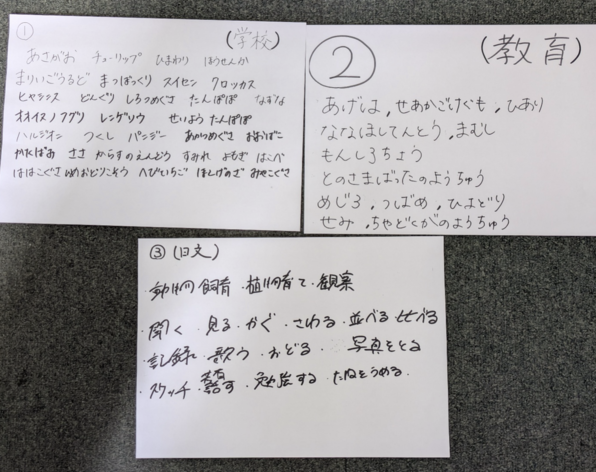 ① (学校)
あさがお チューリップ ひまわり ほうせんか
まりいごうるど まつぼっくり スイセン クロッカス
ヒヤシンス どんぐり しろつめくさ たんぽぽ なずな
オオイヌノフグリ レンゲソウ せいようたんぽぽ
ハルジオン つくし パンジー あかつめぐさ おおばこ
かたばみ ささ からすのえんどう すみれ よもぎ はこべ
ははこぐさ ひめおどりこそう へびいちご ほとけのざ みやこぐさ
② (教育)
あげは、せあかごけぐも、ひあり
ななほしてんとう、まむし
もんしろちょう
とのさまばったのようちゅう
めじろ、つばめ、ひよどり
せみ、ちゃどくがのようちゅう
③ (日文)
動物飼育・植物育て・観察
・聞く・見る・かぐ・さわる・並べる 比べる
・記録・歌う・おどる 写真をとる
・スケッチ・話す・勉強する・たねをうめる.